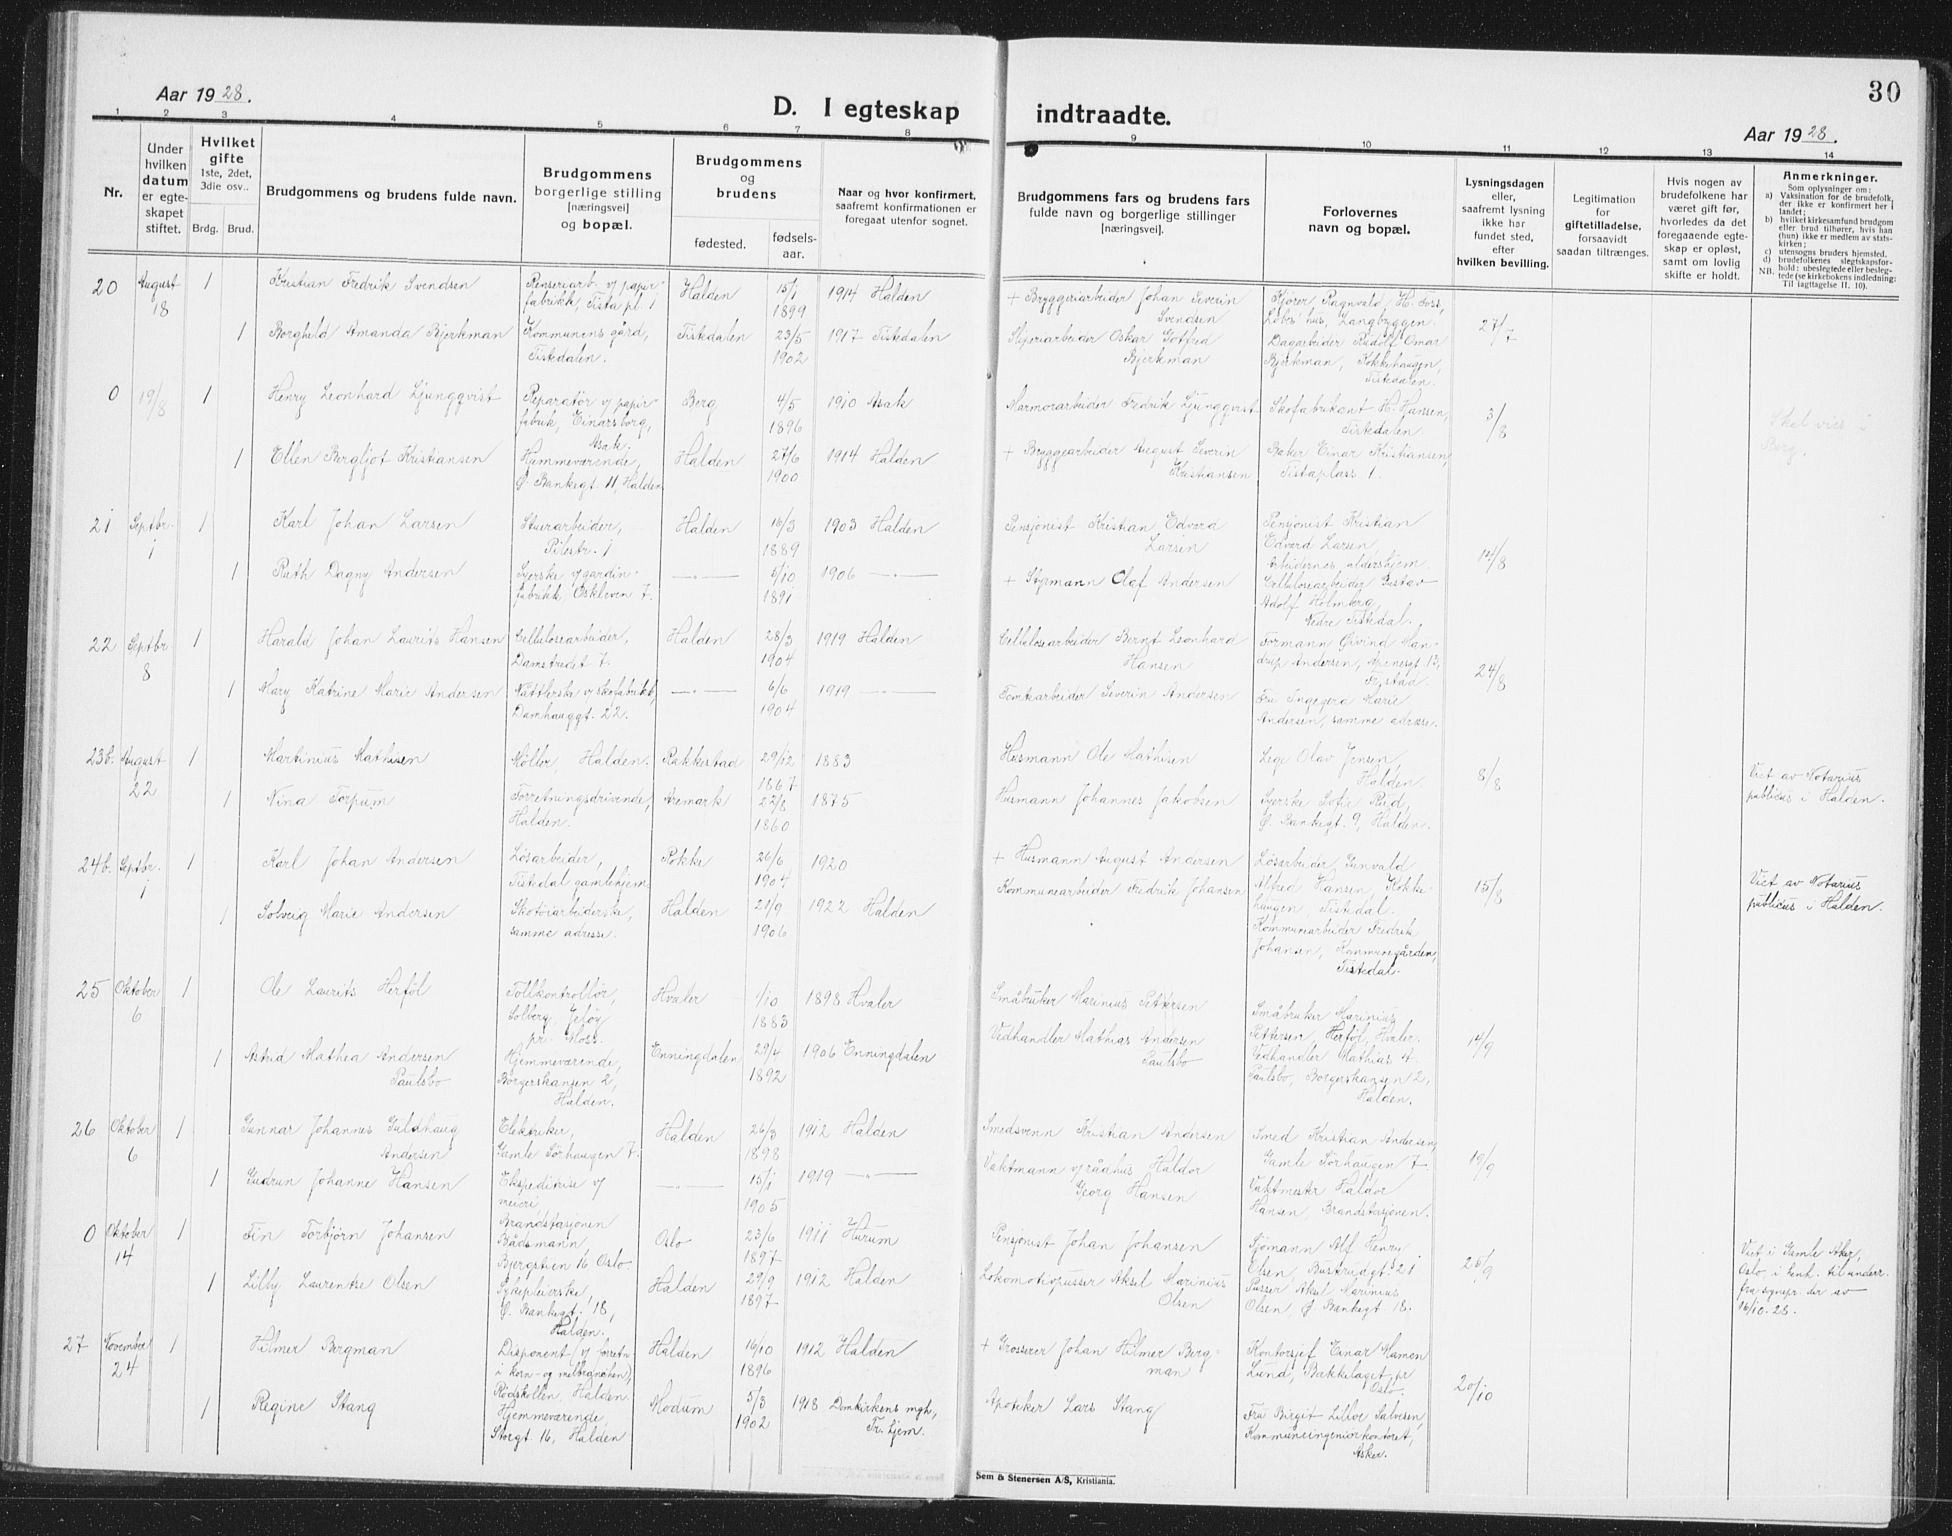 30
Aar 1928.
D. I egteskap indtraadte.
Aar 1928.
1 2 3 4 5 6 7 8 9 10 11 12 13 14
Nr.
Under hvilken datum er egte-skapet stiftet.
Hvilket gifte 1ste, 2det, 3die osv..
Brdg. Brud.
Brudgommens og brudens fulde navn.
Brudgommens borgerlige stilling [næringsvei] og bopæl.
Brudgommens og brudens
fødested. fødsels-aar.
Naar og hvor konfirmert, saafremt konfirmationen er foregaat utenfor sognet.
Brudgommens fars og brudens fars fulde navn og borgerlige stillinger [næringsvei].
Forlovernes navn og bopæl.
Lysningsdagen eller, saafremt lysning ikke har fundet sted, efter hvilken bevilling.
Legitimation for giftetilladelse, forsaavidt saadan tiltrænges.
Hvis nogen av brudefolkene har været gift før, hvorledes da det foregaaende egte-skap er opløst, samt om lovlig skifte er holdt.
Anmerkninger.
Som oplysninger om:
a) Vaksination for de brudefolk, der ikke er konfirmert her i landet;
b) hvilket kirkesamfund brudgom eller brud tilhører, hvis han (hun) ikke er medlem av stats-kirken;
c) utensogns bruders hjemsted.
d) brudefolkenes slegtskapsfor-hold: ubeslegtede eller besleg-tede (se kirkebokens indledning: Til iagttagelse II. 10).
NB.
20 August 18 1 Kristian Fredrik Svendsen
Renseriarb. v/ papir-fabrikk, Tista pl. 1
Halden 15/1 1899 1914 Halden
+ Bryggeriarbeider Johan Severin Svendsen
Ragnvald H. Foss, Langbryggen.
27/7
1 Borghild Amanda Bjerkman
Kommunens gård, Tistedalen.
Tistedalen 23/5 1902 1917 Tistedalen
Sliperiarbeider Oskar Gotfred Bjerkman
Dagarbeider Rudolf Omar Bjerkman, Kokkehaugen, Tistedalen.
0 19/8 1 Henry Leonhard Ljungqvist
Reparatør v/ papir-fabrik, Einarsborg, Asak.
Berg 4/5 1896 1910 Asak
Marmorarbeider Fredrik Ljungqvist
Skofabrikant H. Hansen, Tistedalen.
3/8
Skal vies i Berg.
1 Ellen Bergljot Kristiansen
Hjemmeværende, Ø. Bankegt. 11, Halden
Halden 27/6 1900 1914 Halden
+ Bryggearbeider August Severin Kristiansen
Baker Einar Kristiansen, Tistaplass 1.
21 Septbr. 1 1 Karl Johan Larsen
Stuerarbeider, Pilestr. 1
Halden 16/3 1889 1903 Halden
Pensjonist Kristian Edvard Larsen
Pensjonist Kristian Edvard Larsen, Arbeidernes aldershjem.
14/8
1 Ruth Dagny Andersen
Syerske v/ gardin-fabrikk, Oskleven 7.
—„— 5/10 1891 1906 —„—
+ Styrmann Olaf Andersen
Cellulosearbeider Gustav Adolf Holmberg, Nedre Tistedal.
22 Septbr. 8 1 Harald Johan Laurits Hansen
Cellulosearbeider, Damstredet 7.
Halden 28/3 1904 1919 Halden
Cellulosearbeider Bernt Leonhard Hansen
Formann Eivind Han-drup Andersen, Apenesgt. 13, Fr.stad.
24/8
1 Mary Katrine Marie Andersen
Nåtlerske v/ skofabrikk, Damhauggt. 22.
—„— 6/6 1904 1919 —„—
Tomtearbeider Severin Andersen
Fru Ingegerd Marie Andersen, samme adresse.
23b. August 22 1 Martinius Mathisen
Møller, Halden.
Rakkestad 29/12 1867 1883
Husmann Ole Mathisen
Lege Olav Jensen, Halden.
8/8
Viet av Notarius publicus i Halden.
1 Nina Torpum
Forretningsdrivende, Halden.
Aremark 22/8 1860 1875
Husmann Johannes Jakobsen
Syerske Sofie Rud, Ø. Bankegt. 9, Halden.
24b. Septbr. 1 1 Karl Johan Andersen
Løsarbeider, Tistedal gamlehjem
Rokke 26/6 1904 1920
+ Husmann August Andersen
Løsarbeider Gunvald Alfred Hansen, Kokke-haugen, Tistedal.
15/8
Viet av Notarius publicus i Halden.
1 Solveig Marie Andersen
Skotøiarbeiderske, samme adresse.
Halden 21/9 1906 1922 Halden
Kommunearbeider Fredrik Johansen
Kommunearbeider Fredrik Johansen, Kommunegården, Tistedal.
25 Oktober 6 1 Ole Laurits Herføl
Tollkontrollør, Solberg, Jeløy pr. Moss.
Hvaler 1/10 1883 1898 Hvaler
Småbruker Marinius Pettersen
Småbruker Marinius Pettersen, Herføl, Hvaler.
14/9
1 Astrid Mathea Andersen Paulsbo
Hjemmeværende, Borgerskansen 2, Halden.
Enningdalen 29/4 1892 1906 Enningdalen
Vedhandler Mathias Andersen Paulsbo
Vedhandler Mathias A. Paulsbo, Borgerskansen 2, Halden.
26 Oktober 6 1 Gunnar Johannes Guldhaug Andersen
Elektriker, Gamle Sørhaugen 7.
Halden 26/3 1898 1912 Halden
Smedsvenn Kristian Andersen
Smed Kristian Andersen, Gamle Sørhaugen 7.
19/9
1 Gudrun Johanne Hansen
Ekspeditrise v/ meieri, Brandstasjonen
—„— 15/1 1905 1919 —„—
Vaktmann v/ rådhus Haldor Georg Hansen
Vaktmester Haldor Hansen, Brandstasjonen.
0 Oktober 14 1 Fin Torbjørn Johansen
Bådsmann Bjergstien 16 Oslo.
Oslo 23/6 1897 1911 Hurum
Pensjonist Johan Johansen
Sjømann Alf Henry Olsen, Busterudgt. 21
25/9
Viet i Gamle Aker, Oslo, i henh. til underr. fra sognepr. der av 16/10.28.
1 Lilly Laurentse Olsen
Sykepleierske, Ø. Bankegt. 18, Halden.
Halden 29/9 1897 1912 Halden
Lokomotivpusser Aksel Marinius Olsen
Pusser Aksel Marinius Olsen, Ø Bankegt. 18.
27 November 24 1 Hilmer Bergman
Disponent (v/ forretn. i korn- og melbranchen), Rødskollen, Halden.
Halden 16/10 1896 1912 Halden
+ Grosserer Johan Hilmer Berg-man
Kontorsjef Einar Mamen Lund, Bækkelaget pr Oslo.
20/10
1 Regine Stang
Hjemmeværende, Storgt. 16, Halden
Modum 5/3 1902 1918 Domkirkens mgh., Tr.hjem.
Apoteker Lars Stang
Fru Birgit Lillor Salvesen, Kommuneingeniørkontoret, Asker.
Sem & Stenersen A/S, Kristiania.